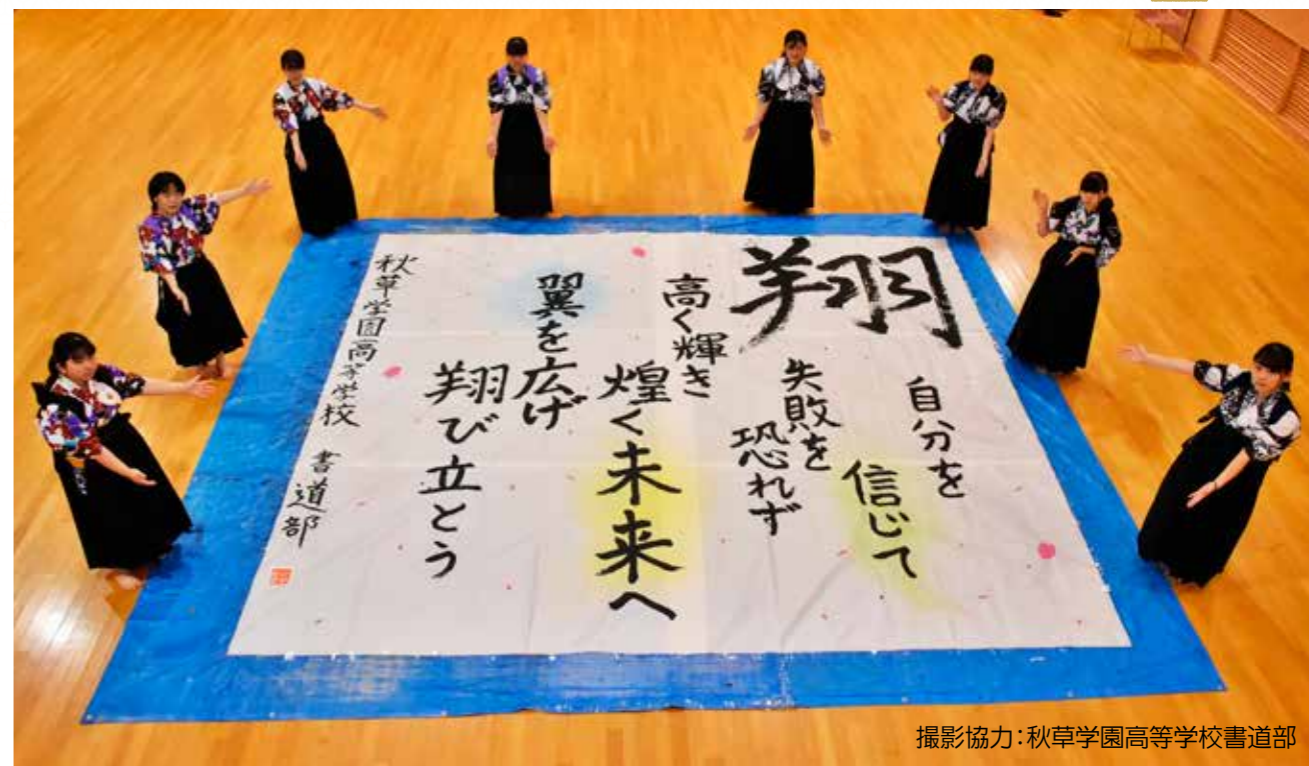 翔
自分を
信じて
失敗を
恐れず
高く輝き
煌く未来へ
翼を広げ
翔び立とう
秋草学園高等学校 書道部
撮影協力:秋草学園高等学校書道部